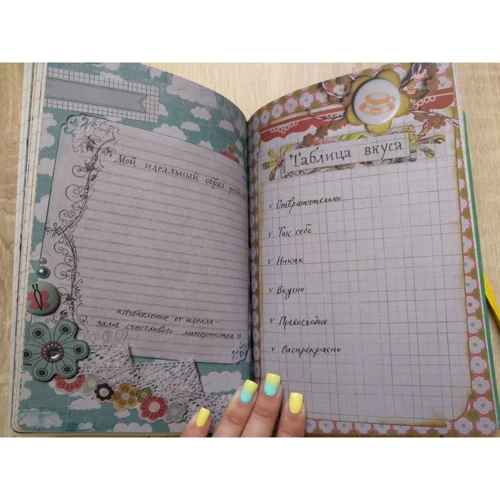 Мой идеальный образ
«Избавление от идеала -
залог счастливого материнства»
Таблица вкуса
v Отвратительно
v Так себе
v Никак
v Вкусно
v Превосходно
v Распрекрасно